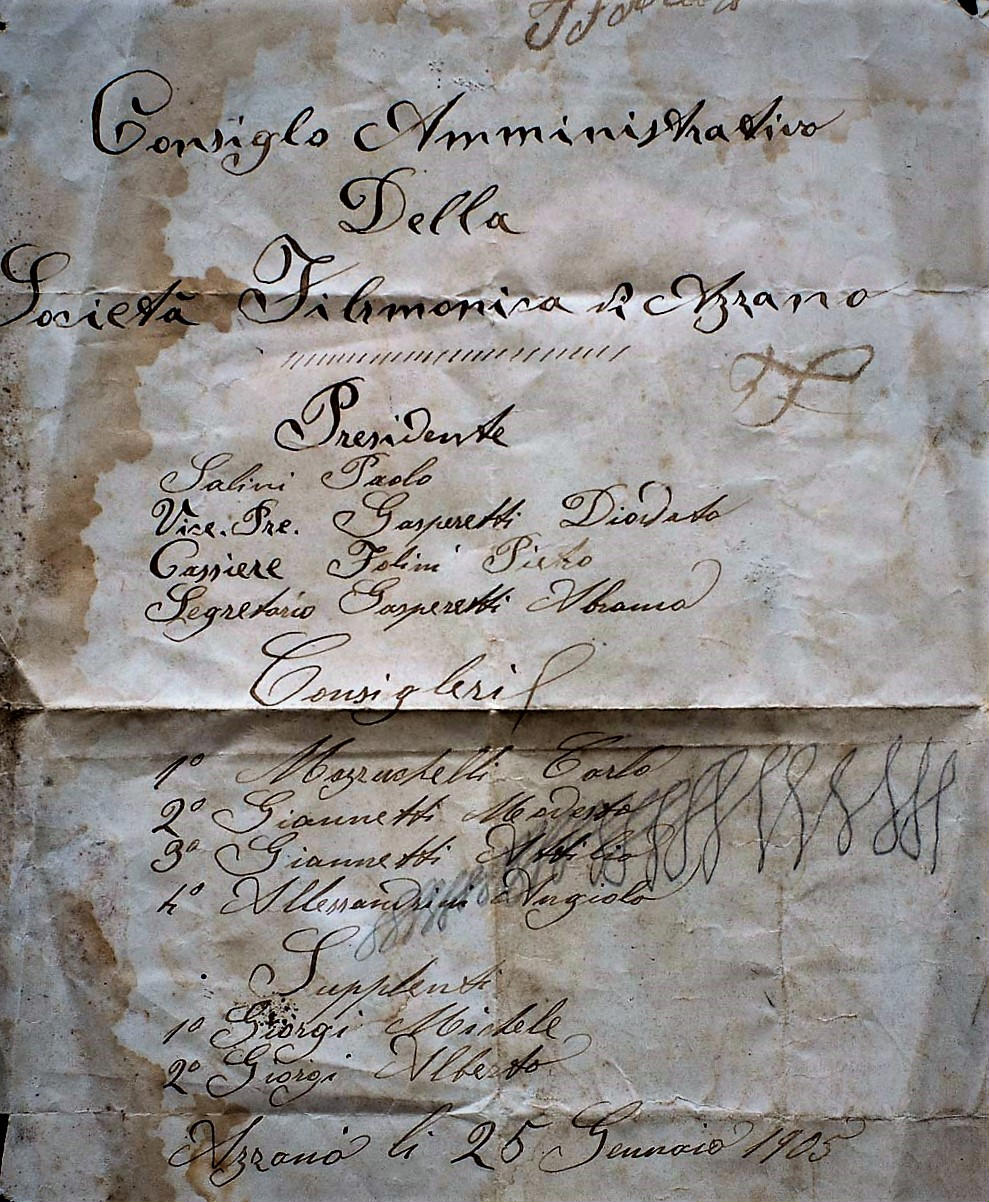 Consiglo Amministrativo
Della
Società Filrmonica di Azzano
Presidente
Salini Paolo
Vice. Pre. Gasperetti Diodato
Cassiere Folini Pietro
Segretario Gasperetti Abramo
Consigleri
1º Mazzuchelli Carlo
2º Giannetti Modesto
3º Giannetti Attilio
4º Allessandrini Angiolo
Supplenti
1º Giorgi Michele
2º Giorgi Alberto
Azzano li 25 Gennaio 1905